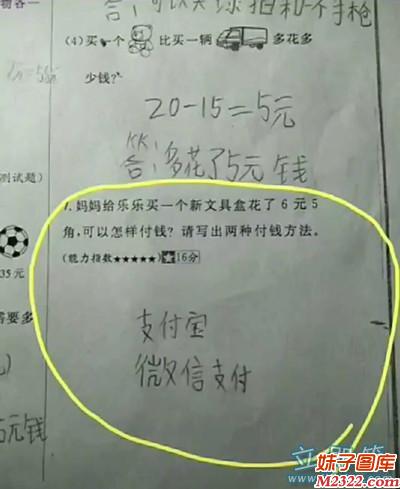 物各一
答：可以买球拍和一个手枪
(4)买一个
比买一辆
多花多
少钱?
20-15=5元
答：多花了5元钱
测试题)
7.妈妈给乐乐买一个新文具盒花了 6 元 5
角,可以怎样付钱? 请写出两种付钱方法。
(能力指数★★★★★)
★16分
35元
需要多
支付宝
微信支付
5元钱
妹子图库
M2322.com